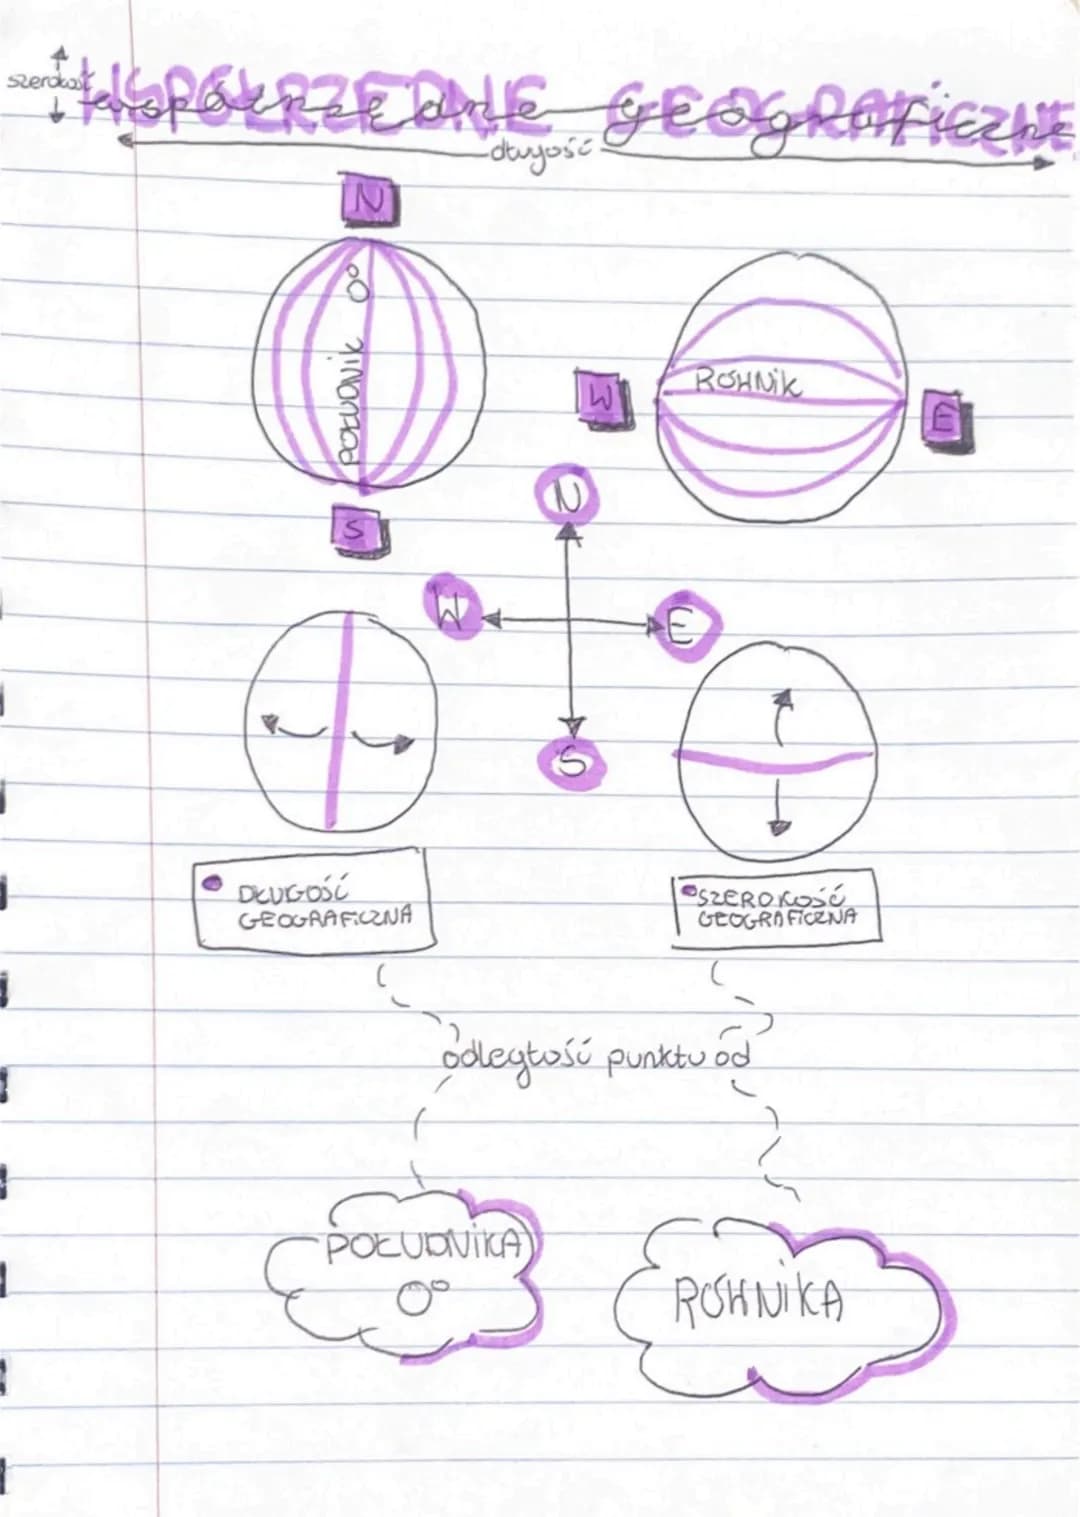 szerokość
WSPÓŁRZĘDNE GEOGRAFICZNE
współrzędne geograficzne
długość
N
POŁUDNIK 0°
S
W
RÓWNIK
E
N
W
E
S
DŁUGOŚĆ
GEOGRAFICZNA
SZEROKOŚĆ
GEOGRAFICZNA
odległość punktu od
POŁUDNIKA
0°
RÓWNIKA